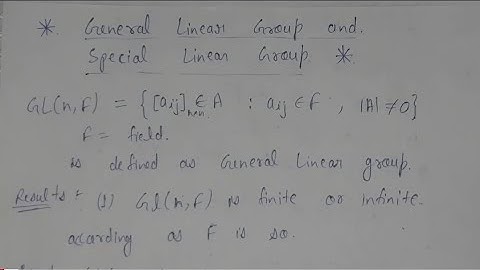 *. General Linear Group and.
Special Linear Group. *.
GL(n,F) = {[aij]n×n ∈ A : aij ∈ F, |A| ≠ 0}
F = field.
is defined as General Linear group.
Results: (1) Gl(n,F) is finite or infinite.
acording as F is so.